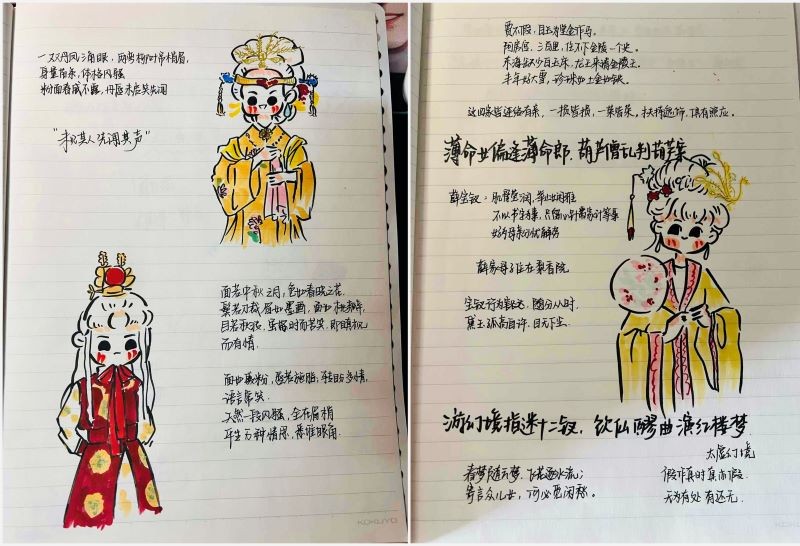 一双丹凤三角眼，两弯柳叶吊梢眉，
身量苗条，体格风骚
粉面春威不露，丹唇未启笑先闻
"未见其人先闻其声"
面若中秋之月，色如春晓之花，
鬓若刀裁，眉如墨画，面如桃瓣，
目若秋波，虽怒时而若笑，即瞋视
而有情。
面如敷粉，唇若施脂，转盼多情，
语言常笑。
天然一段风骚，全在眉梢
平生万种情思，悉堆眼角
KOKUYO
贾不假，白玉为堂金作马。
阿房宫，三百里，住不下金陵一个史。
东海缺少白玉床，龙王来请金陵王。
丰年好大雪，珍珠如土金如铁。
这四家皆连络有亲，一损皆损，一荣皆荣，扶持遮饰，俱有照应。
薄命女偏逢薄命郎，葫芦僧乱判葫芦案
薛宝钗：肌骨莹润，举止娴雅
不以书字为事，只留心针黹家计等事
好为母亲分忧解劳
薛家母子住在梨香院
宝钗行为豁达，随分从时，
黛玉孤高自许，目无下尘。
游幻境指迷十二钗，饮仙醪曲演红楼梦
太虚幻境
春梦随云梦，飞花逐水流；
寄言众儿女，何必觅闲愁。
假作真时真亦假
无为有处有还无
KOKUYO